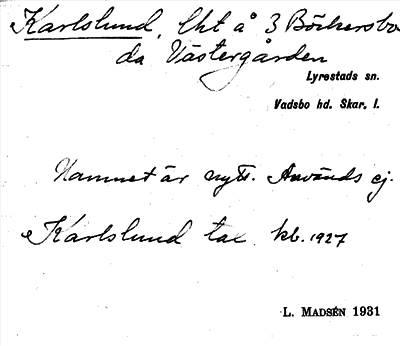 Karlslund, lht å 3 Böckersbo
da Västergården
Lyrestads sn.
Vadsbo hd. Skar. l.
Namnet är nytt. Används ej.
Karlslund tax kb. 1927
L. MADSÉN 1931